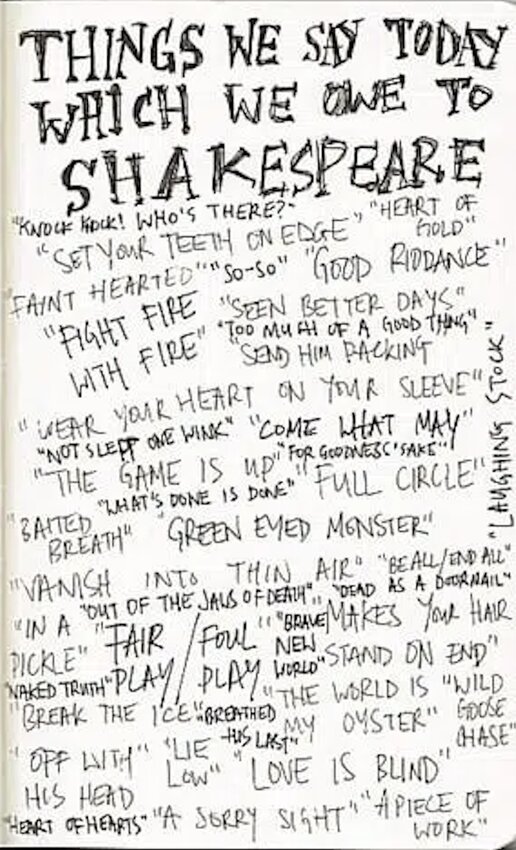 THINGS WE SAY TODAY
WHICH WE OWE TO
SHAKESPEARE
"KNOCK KOCK! WHO'S THERE?" "HEART OF GOLD"
"SET YOUR TEETH ON EDGE"
"FAINT HEARTED" "SO-SO" "GOOD RIDDANCE"
"FIGHT FIRE WITH FIRE"
"SEEN BETTER DAYS"
"TOO MUCH OF A GOOD THING"
"SEND HIM PACKING
"WEAR YOUR HEART ON YOUR SLEEVE"
"LAUGHING STOCK"
"NOT SLEPT ONE WINK" "COME WHAT MAY"
"THE GAME IS UP" "FOR GOODNESS'SAKE"
"WHAT'S DONE IS DONE" "FULL CIRCLE"
"BAITED BREATH" "GREEN EYED MONSTER"
"VANISH INTO THIN AIR" "BE ALL/END ALL"
"OUT OF THE JAWS OF DEATH" "DEAD AS A DOORNAIL"
"IN A PICKLE" "FAIR PLAY/FOUL PLAY" "BRAVE NEW WORLD" MAKES YOUR HAIR STAND ON END"
"NAKED TRUTH" "THE WORLD IS MY OYSTER" "WILD GOOSE CHASE"
"BREAK THE ICE" "BREATHED HIS LAST"
"OFF WITH HIS HEAD "LIE LOW" "LOVE IS BLIND"
"HEART OF HEARTS" "A SORRY SIGHT" "A PIECE OF WORK"